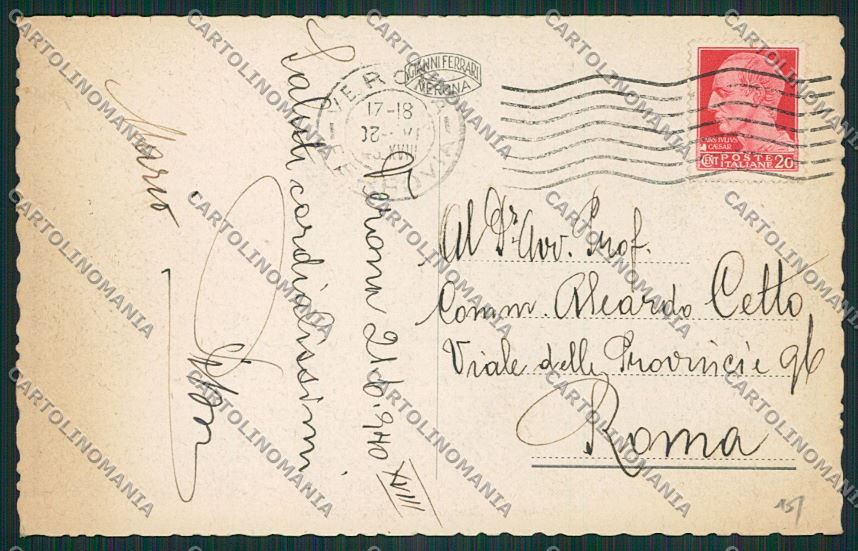 Verona 21.6.940 XVIII
Saluti cordialissimi
Mario
GIANNI FERRARI
VERONA
17-18
XVIII
CAIVS IVLIVS
CAESAR
CENT POSTE ITALIANE 20
Al Dr. Avv. Prof.
Comm. Aleardo Cetto
Viale delle Provincie 96
Roma
CARTOLINOMANIA